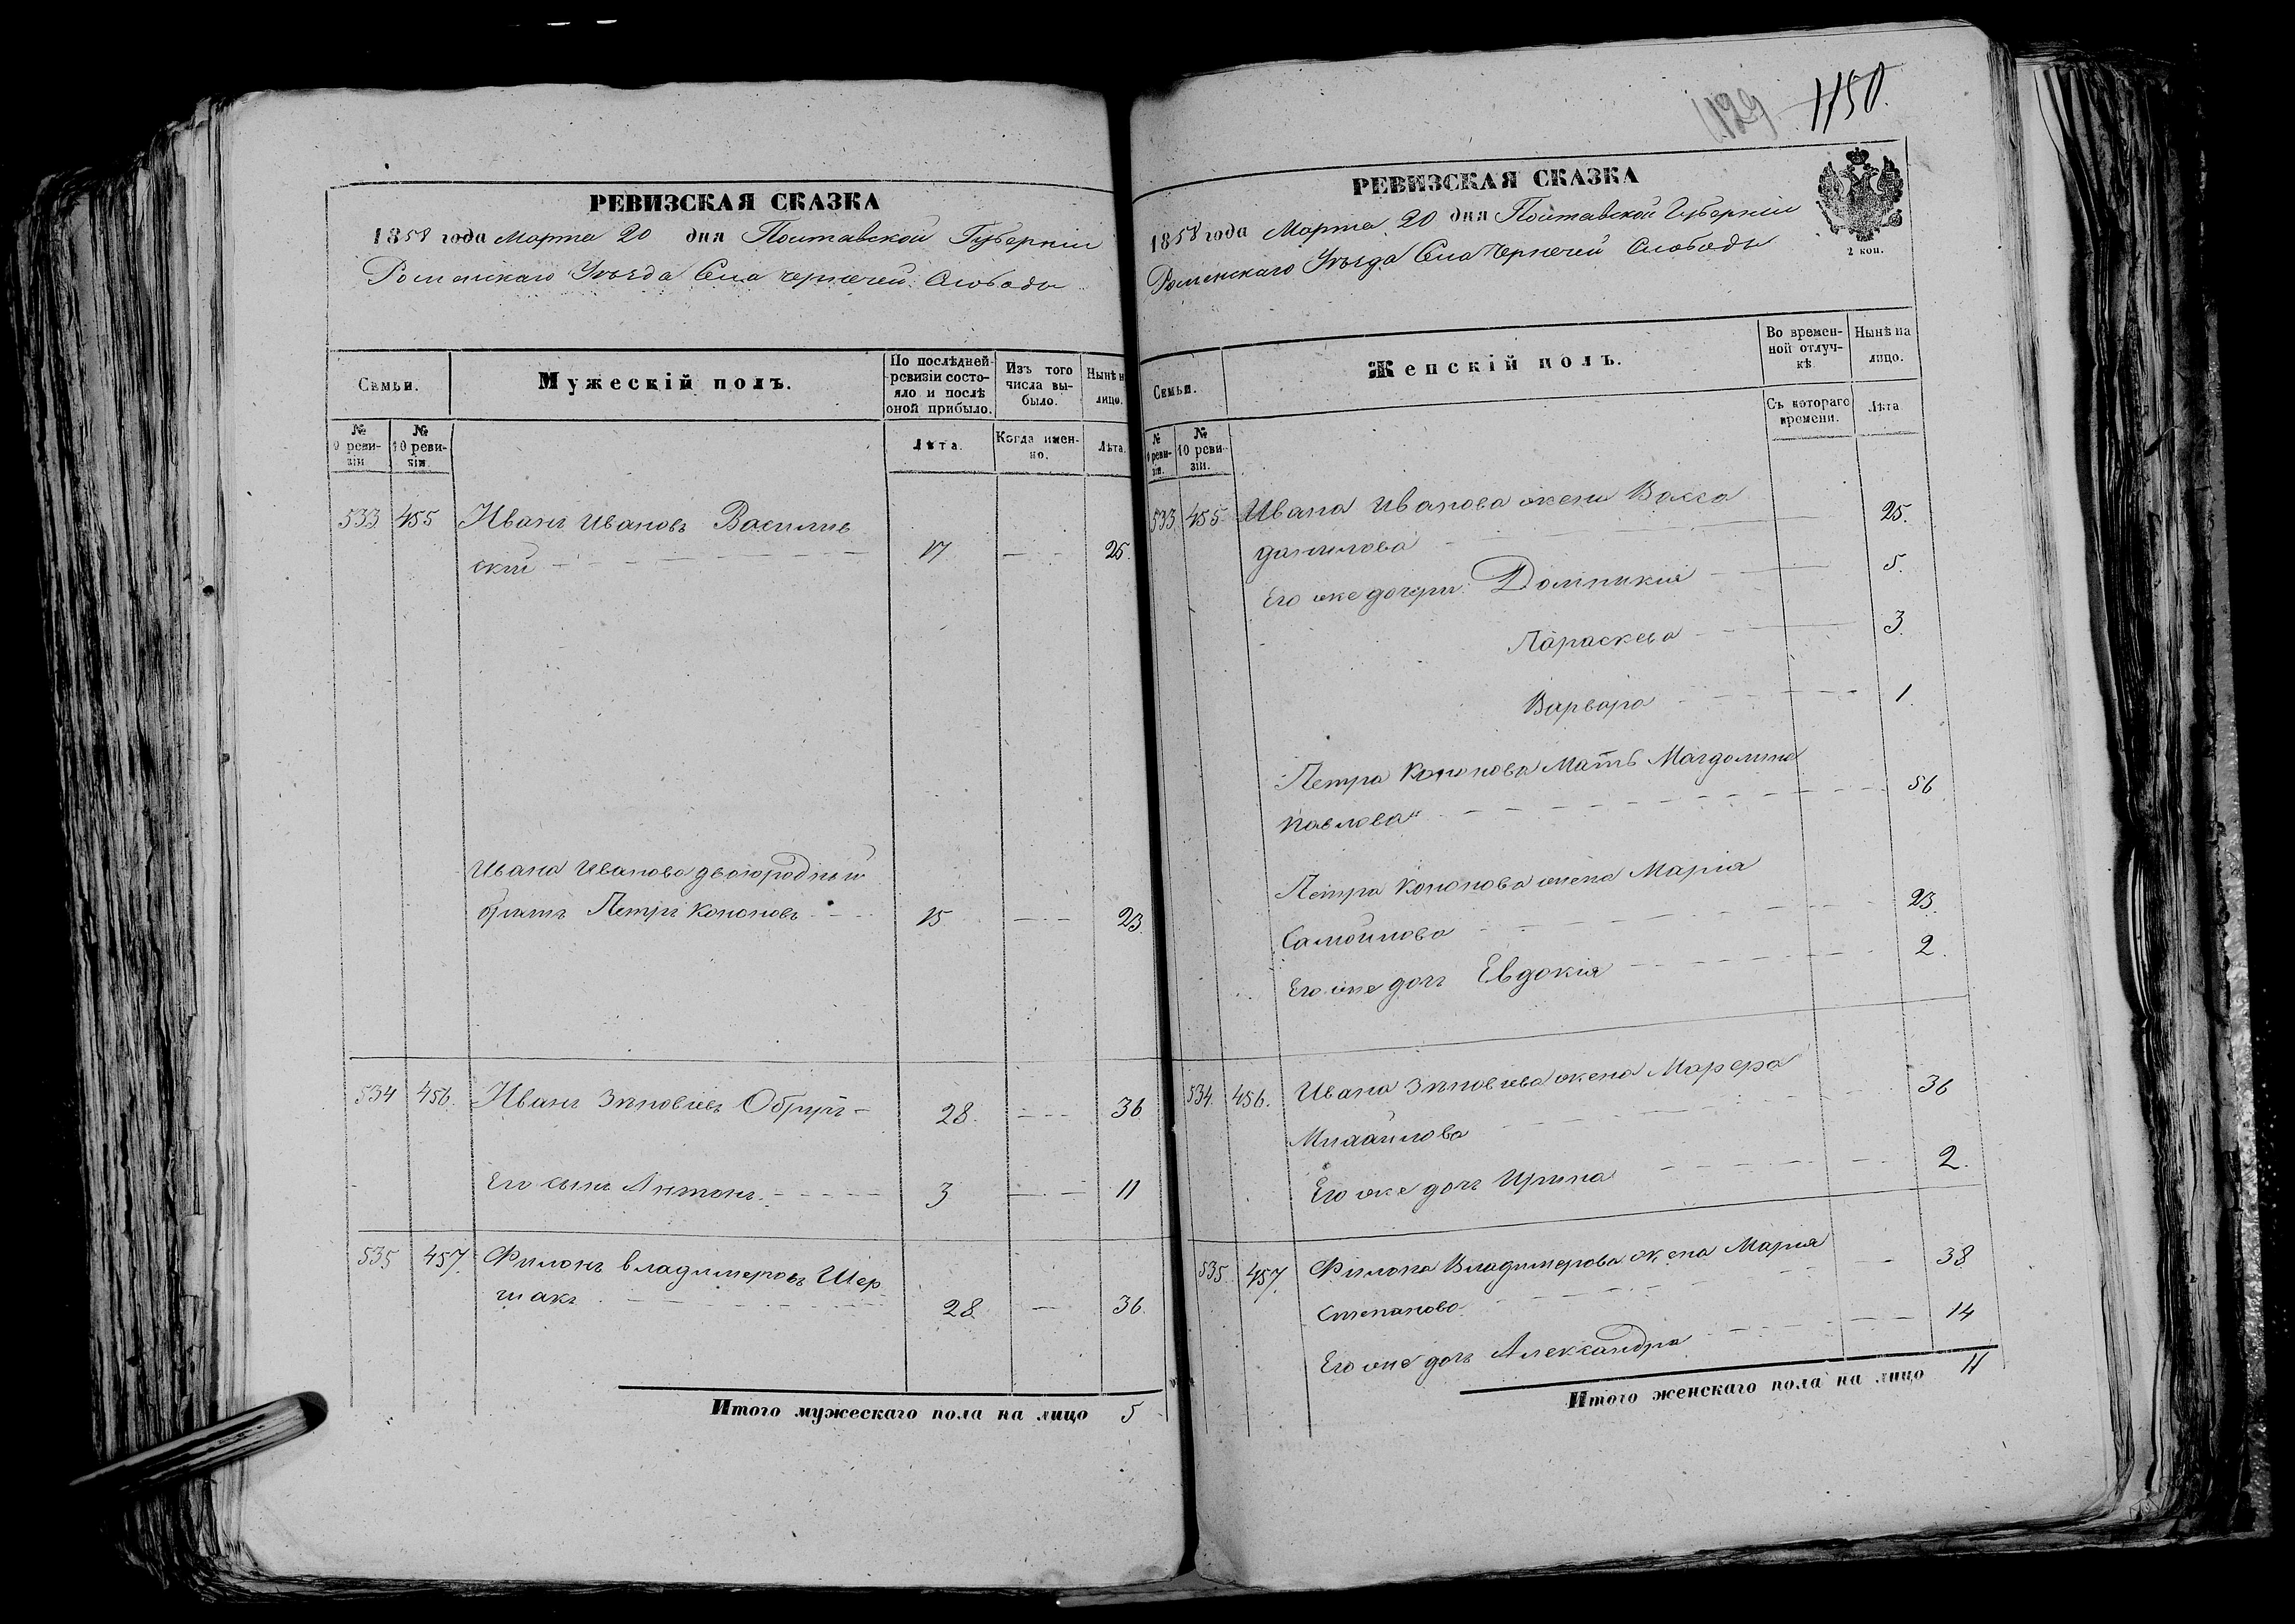 РЕВИЗСКАЯ СКАЗКА
1858 года Марта 20 дня Полтавской Губерніи
Роменскаго Уѣзда Села Чернечей Слободы
Семьи.
Мужескій полъ.
По послѣдней ревизіи состояло и послѣ оной прибыло.
Изъ того числа выбыло.
Нынѣ на лицо.
№ 9 ревизіи
№ 10 ревизіи.
Лѣта.
Когда именно.
Лѣта.
533 455 Иванъ Ивановъ Василив
скій 17 25.
Ивана Иванова двоюродный
братъ Петръ Кононовъ 15 23.
534 456. Иванъ Зѣновіевъ Обрушъ 28. 36
Его сынъ Антонъ. 3 11
535 457. Филонъ Владимеровъ Шер
шакъ 28. 36.
Итого мужескаго пола на лицо 5
1129 1150.
РЕВИЗСКАЯ СКАЗКА
1858 года Марта 20 дня Полтавской Губерніи
Роменскаго Уѣзда Села Чернечей Слободы
2 коп.
Семьи.
Женскій полъ.
Во временной отлучкѣ.
Нынѣ на лицо.
№ 9 ревизіи.
№ 10 ревизіи.
Съ котораго времени.
Лѣта
533 455 Ивана Иванова жена Васса
данилова 25.
Его же дочери Домникія 5.
Параскева 3.
Варвара 1.
Петра Кононова Мать Магдалина
Павлова 56
Петра Кононова жена Марія
Самойлова 23.
Его же дочь Евдокія 2.
534. 456. Ивана Зѣновіева жена Марфра
Михайлова 36
Его же дочь Ирина 2.
535. 457. Филона Владимерова жена Марія
Степанова 38
Его же дочь Александра 14
Итого женскаго пола на лицо 11